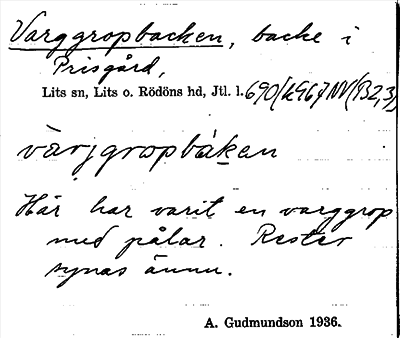 Varggropbacken, backe i
Prisgård,
Lits sn, Lits o. Rödöns hd, Jtl. l.
várjgropbàkan
Här har varit en varggrop
med pålar. Rester
synas ännu.
A. Gudmundson 1936.